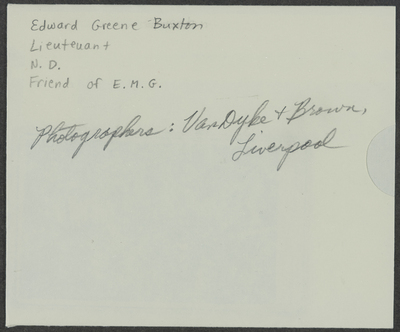 Edward Greene Buxton
Lieutenant
N. D.
Friend of E. M. G.
Photographers: VanDyke + Brown,
Liverpool